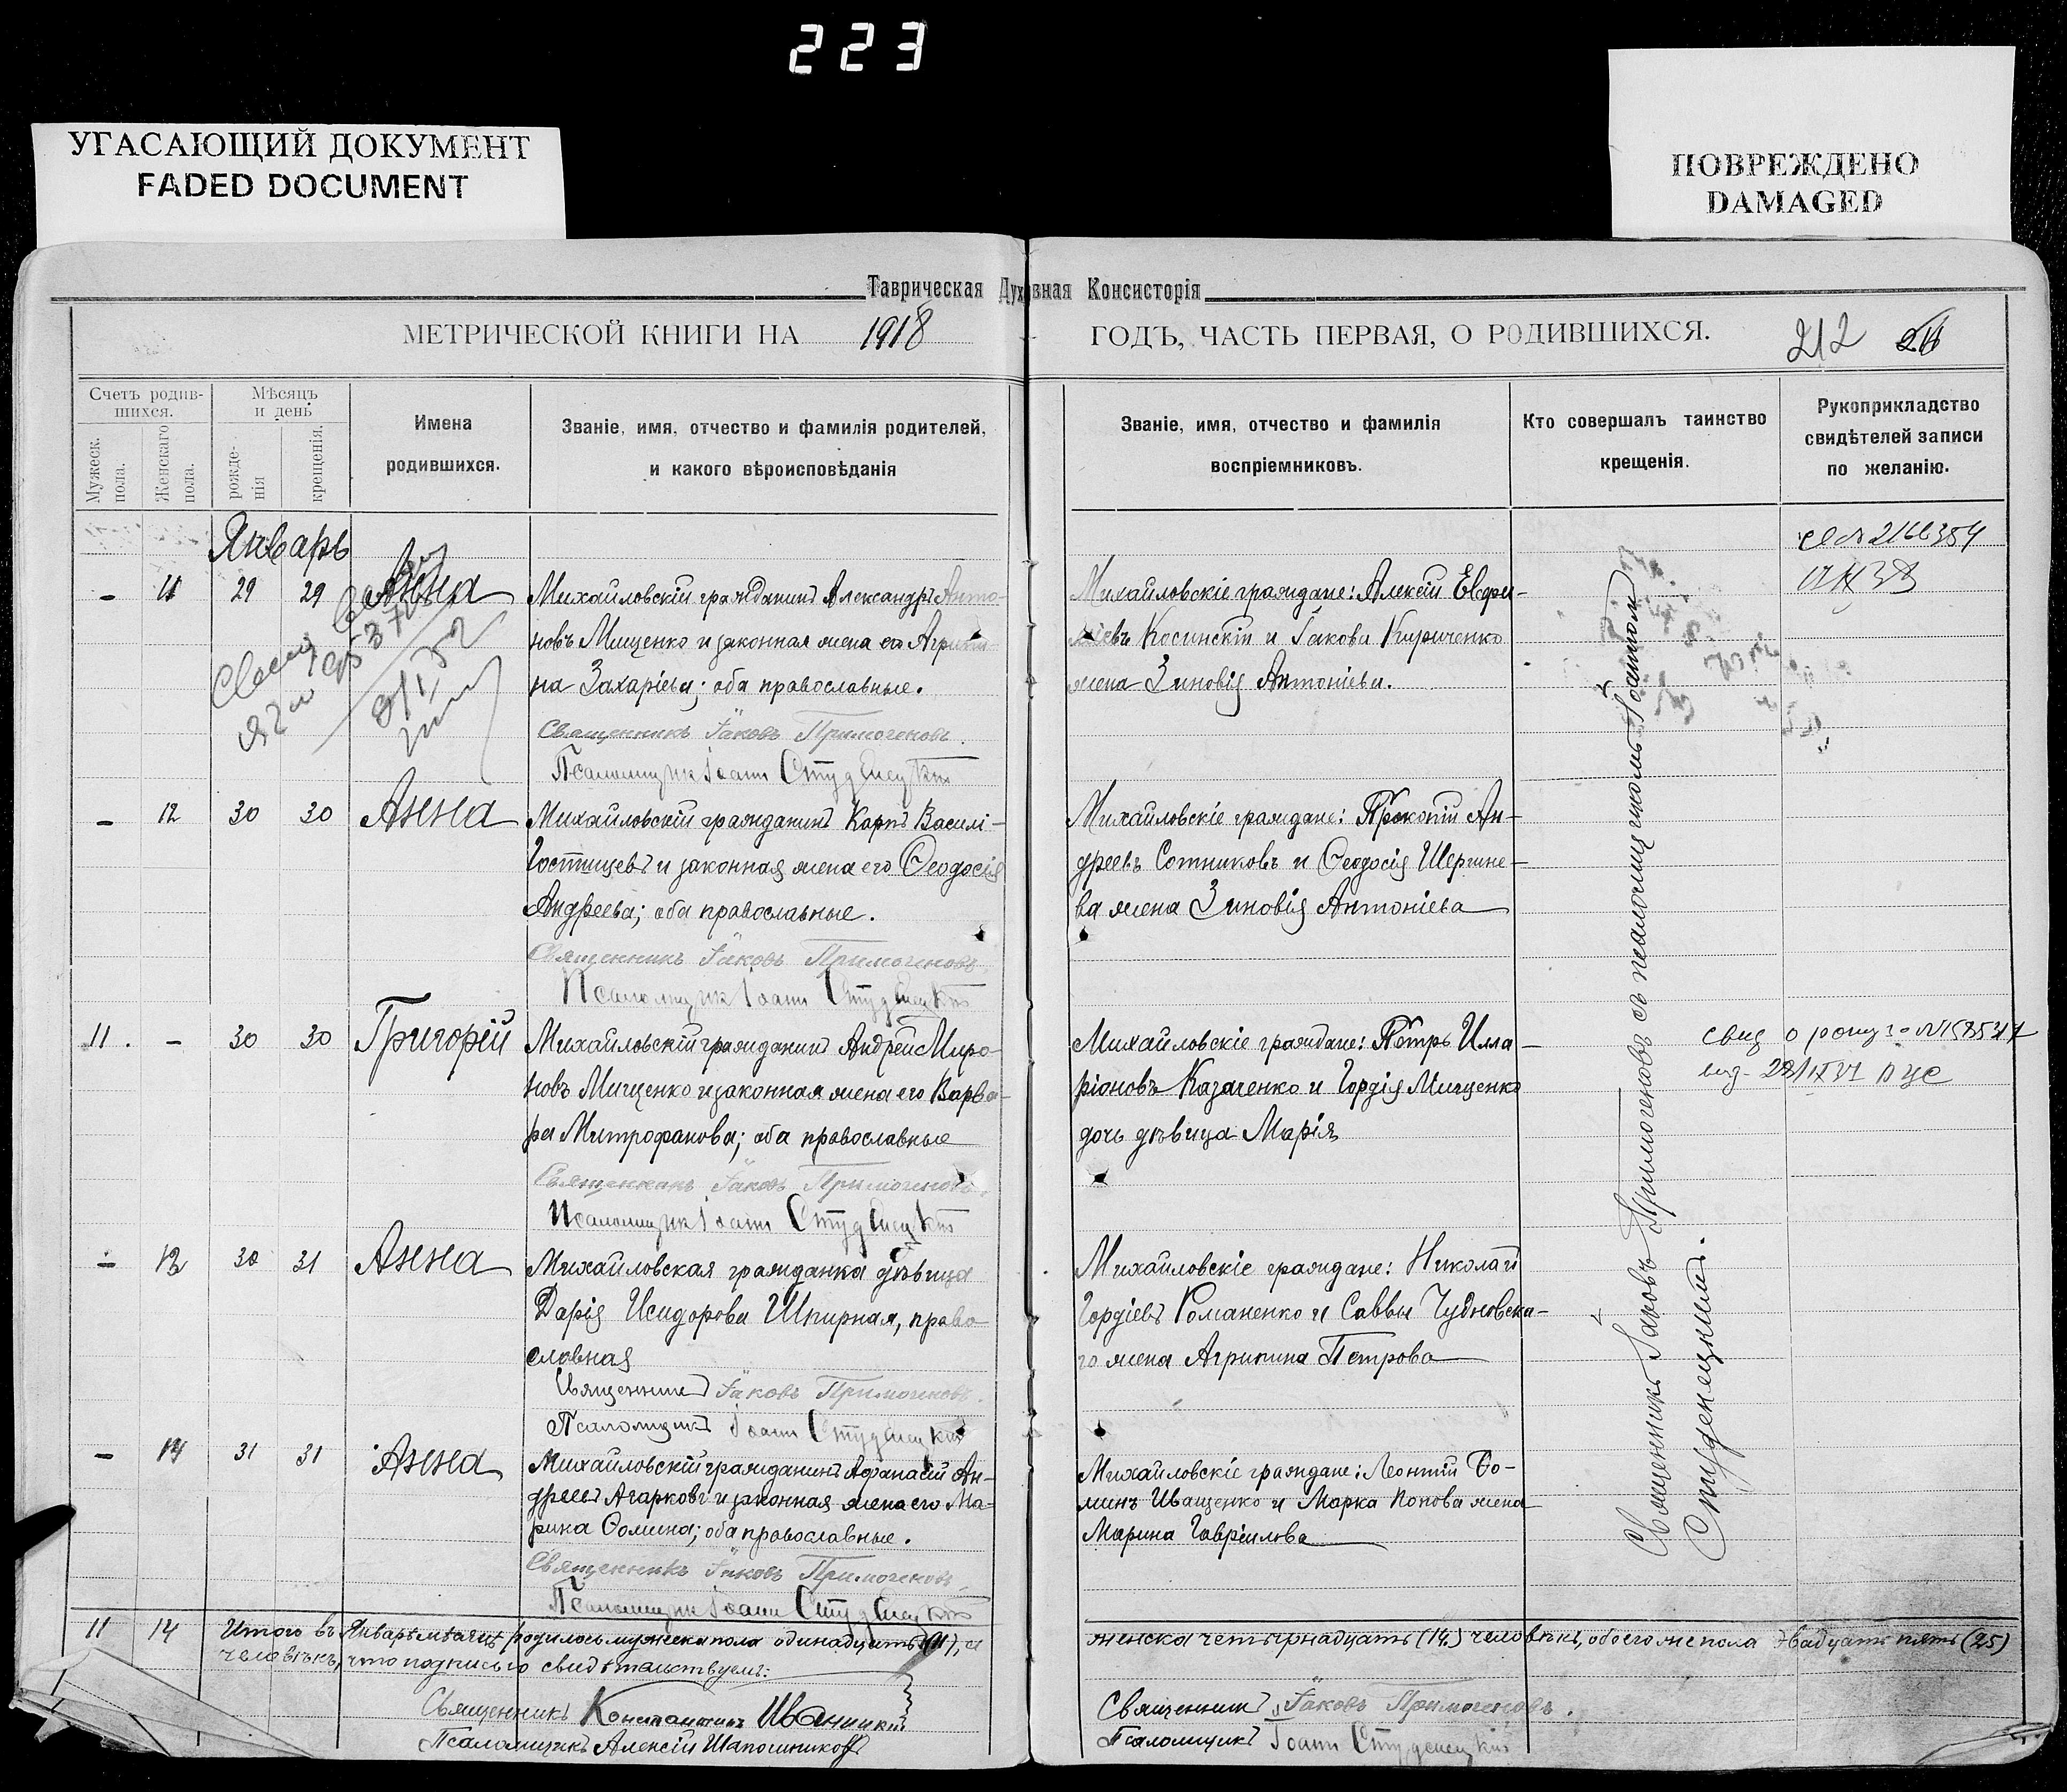 223
УГАСАЮЩИЙ ДОКУМЕНТ
FADED DOCUMENT
ПОВРЕЖДЕНО
DAMAGED
Таврическая Духовная Консисторія
МЕТРИЧЕСКОЙ КНИГИ НА 1918
ГОДЪ, ЧАСТЬ ПЕРВАЯ, О РОДИВШИХСЯ.
212
Счетъ родив-
шихся.
Мужеск.
пола.
Женскаго
пола.
Мѣсяцъ
и день
рожде-
нія
крещенія.
Имена
родившихся.
Званіе, имя, отчество и фамилія родителей,
и какого вѣроисповѣданія
Званіе, имя, отчество и фамилія
воспріемниковъ.
Кто совершалъ таинство
крещенія.
Рукоприкладство
свидѣтелей записи
по желанію.
Январь
– 11 29 29 Анна
Михайловскій гражданинъ Александръ Анто-
новъ Мищенко и законная жена его Агрипи-
на Захаріева; оба православные.
Священникъ Іаковъ Примогеновъ.
Псаломщикъ Іоаннъ Студенецкій
Михайловскіе граждане: Алексій Евфи-
міевъ Косинскій и Іакова Кириченко
жена Зиновія Антоніева.
– 12 30 30 Анна
Михайловскій гражданинъ Карпъ Василі-
Гостищевъ и законная жена его Ѳеодосія
Андреева; оба православные.
Священникъ Іаковъ Примогеновъ.
Псаломщикъ Іоаннъ Студенецкій
Михайловскіе граждане: Прокопій Ан-
дреевъ Сотниковъ и Ѳеодосія Шергине-
ва жена Зиновія Антоніева
11. – 30 30 Григорій
Михайловскій гражданинъ Андрей Миро-
новъ Мищенко и законная жена его Варва-
ра Митрофанова; оба православные
Священникъ Іаковъ Примогеновъ.
Псаломщикъ Іоаннъ Студенецкій
Михайловскіе граждане: Петръ Илла-
ріоновъ Казаченко и Гордія Мищенко
дочь дѣвица Марія
свид о рожд
– 13 30 31 Анна
Михайловская гражданка дѣвица
Дарія Исидорова Шпирная, право-
славная
Священникъ Іаковъ Примогеновъ.
Псаломщикъ Іоаннъ Студенецкій
Михайловскіе граждане: Николай
Гордіевъ Романенко и Саввы Чудновска-
го жена Агрипина Петрова
– 14 31 31 Анна
Михайловскій гражданинъ Аѳанасій Ан-
дреевъ Агарковъ и законная жена его Ма-
рина Ѳомина; оба православные.
Священникъ Іаковъ Примогеновъ.
Псаломщикъ Іоаннъ Студенецкій
Михайловскіе граждане: Леонтій Ѳо-
минъ Иващенко и Марка Попова жена
Марина Гавріилова
Священникъ Іаковъ Примогеновъ съ псаломщикомъ Іоанномъ
Студенецкимъ.
11 14 Итого въ Январѣ мѣсяцѣ родилось мужеска пола одинадцать (11), и
женска четырнадцать (14) человѣкъ, обоего же пола двадцать пять (25)
человѣкъ, что подписью свидѣтельствуемъ:
Священникъ Константинъ Иваницкій
Псаломщикъ Алексій Шапошниковъ
Священникъ Іаковъ Примогеновъ.
Псаломщикъ Іоаннъ Студенецкій